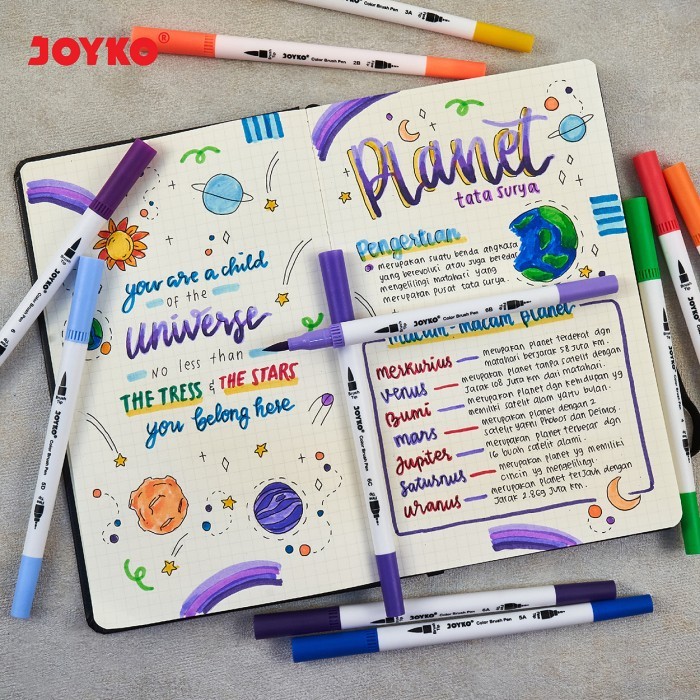 JOYKO®
JOYKO Color Brush Pen Brush Tip 2B
3A
you are a child
of the
Universe
no less than
THE TRESS & THE STARS
you belong here
Planet
tata surya
Pengertian
merupakan suatu benda angkasa
yang berevolusi atau juga beredar
mengelilingi matahari yang
merupakan pusat tata surya.
JOYKO Color Brush Pen 6B
macam-macam planet
merkurius — merupakan planet terdekat dgn
matahari berjarak 58 juta km.
venus — merupakan planet tanpa satelit dengan
jarak 108 juta km dari matahari.
Bumi — merupakan planet dgn kehidupan yg
memiliki satelit alam yaitu bulan.
mars — merupakan planet dengan 2
satelit yaitu Phobos dan Deimos.
Jupiter — merupakan planet terbesar dgn
16 buah satelit alami.
Saturnus — merupakan planet yg memiliki
cincin yg mengelilingi.
uranus — merupakan planet terjauh dengan
jarak 2.869 juta km.
Brush Tip JOYKO Color Brush Pen 5D
JOYKO Color Brush Pen 6C
JOYKO Color Brush Pen 6A
JOYKO Color Brush Pen 5A